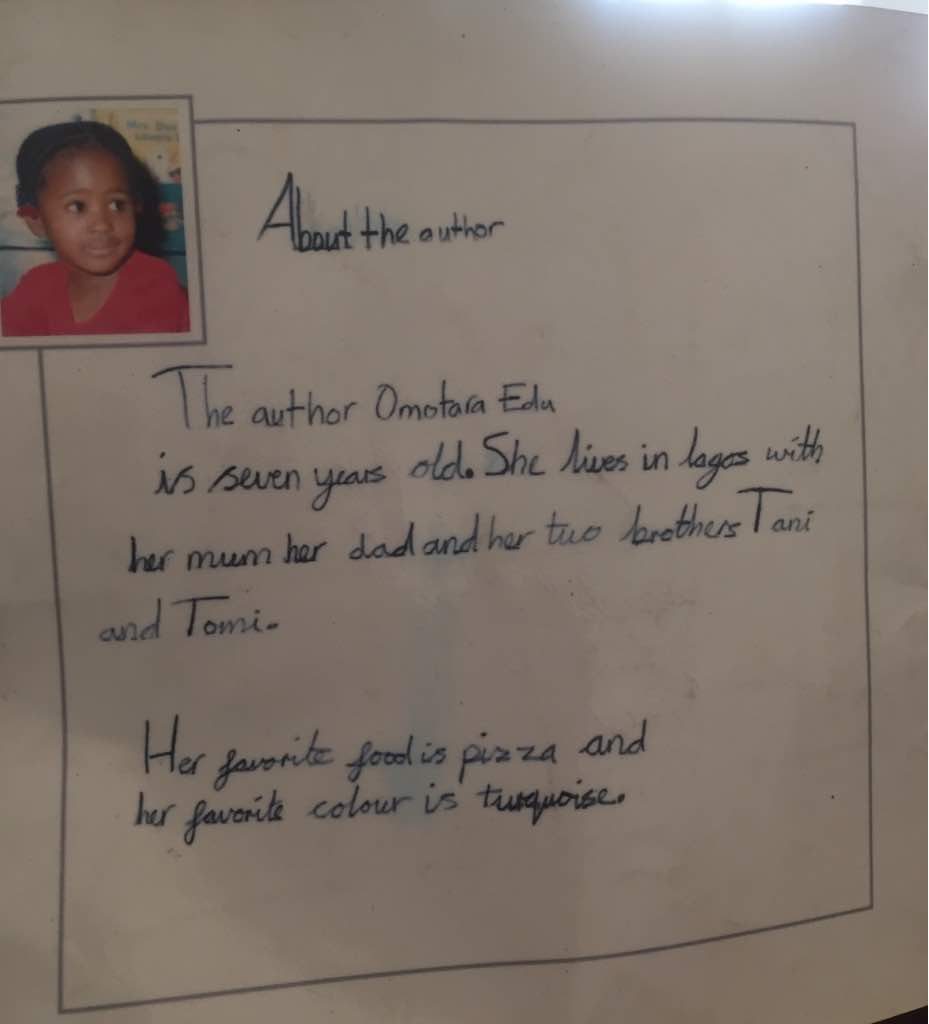 About the author
The author Omotara Edu
is seven years old. She lives in lagos with
her mum her dad and her two brothers Tani
and Tomi.
Her favorite food is pizza and
her favorite colour is turquoise.